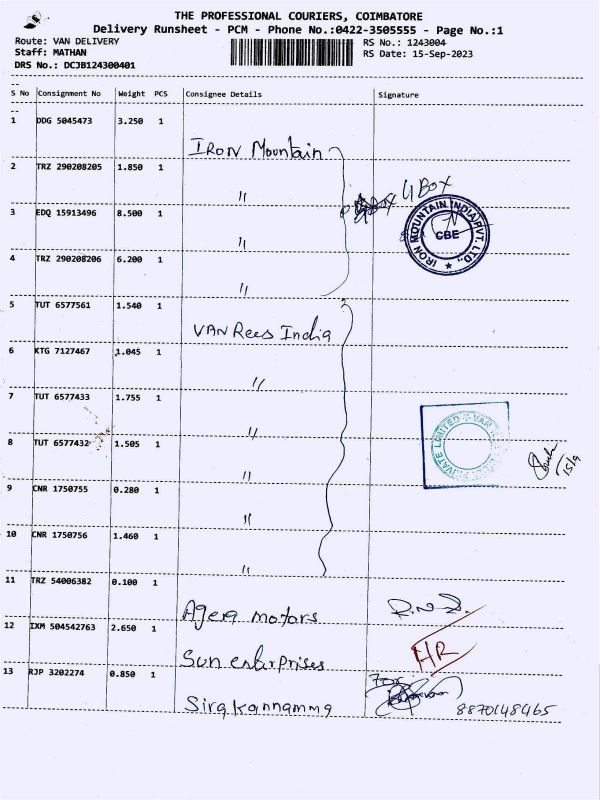 THE PROFESSIONAL COURIERS, COIMBATORE
Delivery Runsheet - PCM - Phone No.:0422-3505555 - Page No.:1
Route: VAN DELIVERY RS No.: 1243004
Staff: MATHAN RS Date: 15-Sep-2023
DRS No.: DCJB124300401
S No Consignment No Weight PCS Consignee Details Signature
1 DDG 5045473 3.250 1
IRON Mountain
2 TRZ 290208205 1.850 1
4 Box
Box
"
3 EDQ 15913496 8.500 1
IRON MOUNTAIN INDIA PVT. LTD.,
CBE
"
4 TRZ 290208206 6.200 1
"
5 TUT 6577561 1.540 1
VAN Rees India
6 KTG 7127467 1.045 1
"
7 TUT 6577433 1.755 1
"
8 TUT 6577432 1.505 1
VATE LIMITED * VAN
15/9
"
9 CNR 1750755 0.280 1
"
10 CNR 1750756 1.460 1
"
11 TRZ 54006382 0.100 1
Agera motors
12 IXM 504542763 2.650 1
HR
Sun enterprises
13 RJP 3202274 0.850 1
For
Sirakannamma 8870148465